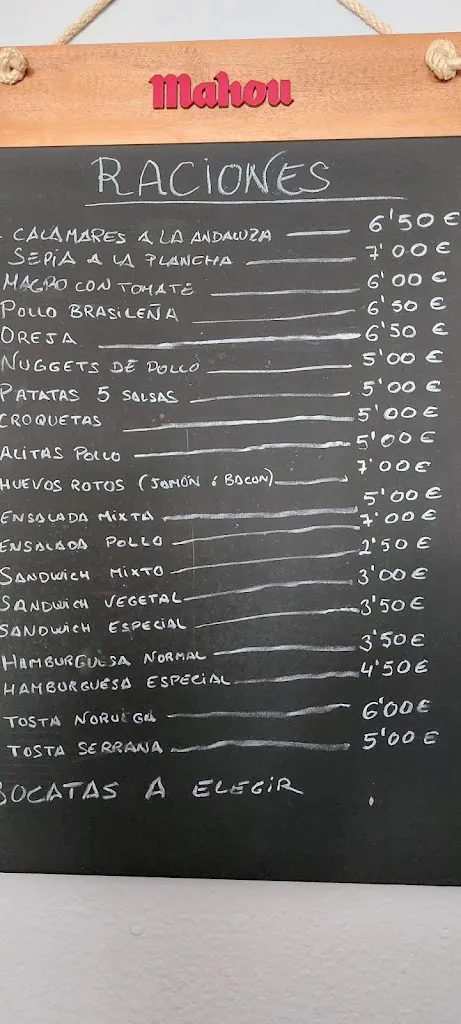 Mahou
RACIONES
CALAMARES A LA ANDALUZA 6'50 €
SEPIA A LA PLANCHA 7'00 €
MAGRO CON TOMATE 6'00 €
POLLO BRASILEÑA 6'50 €
OREJA 6'50 €
NUGGETS DE POLLO 5'00 €
PATATAS 5 SALSAS 5'00 €
CROQUETAS 5'00 €
ALITAS POLLO 5'00 €
HUEVOS ROTOS (JAMÓN ó BACON) 7'00 €
ENSALADA MIXTA 5'00 €
ENSALADA POLLO 7'00 €
SANDWICH MIXTO 2'50 €
SANDWICH VEGETAL 3'00 €
SANDWICH ESPECIAL 3'50 €
HAMBURGUESA NORMAL 3'50 €
HAMBURGUESA ESPECIAL 4'50 €
TOSTA NORUEGA 6'00 €
TOSTA SERRANA 5'00 €
BOCATAS A ELEGIR